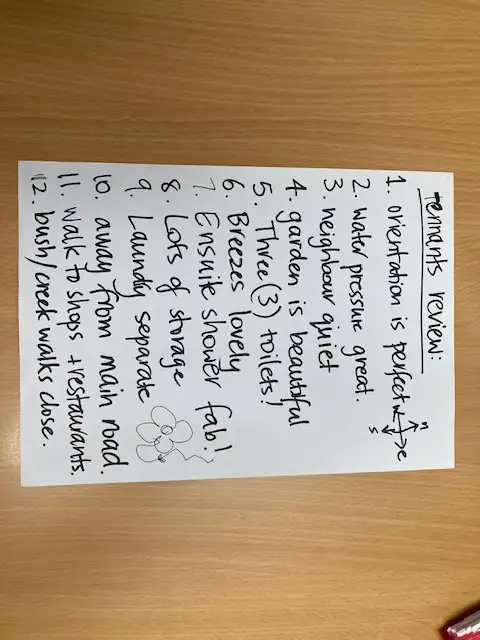 Tennants review:
1. orientation is perfect
n
w
e
s
2. water pressure great.
3. neighbour quiet
4. garden is beautiful
5. Three (3) toilets!
6. Breezes lovely
7. Ensuite shower fab!
8. Lots of storage
9. Laundry separate
10. away from main road.
11. walk to shops + restaurants.
12. bush/creek walks close.